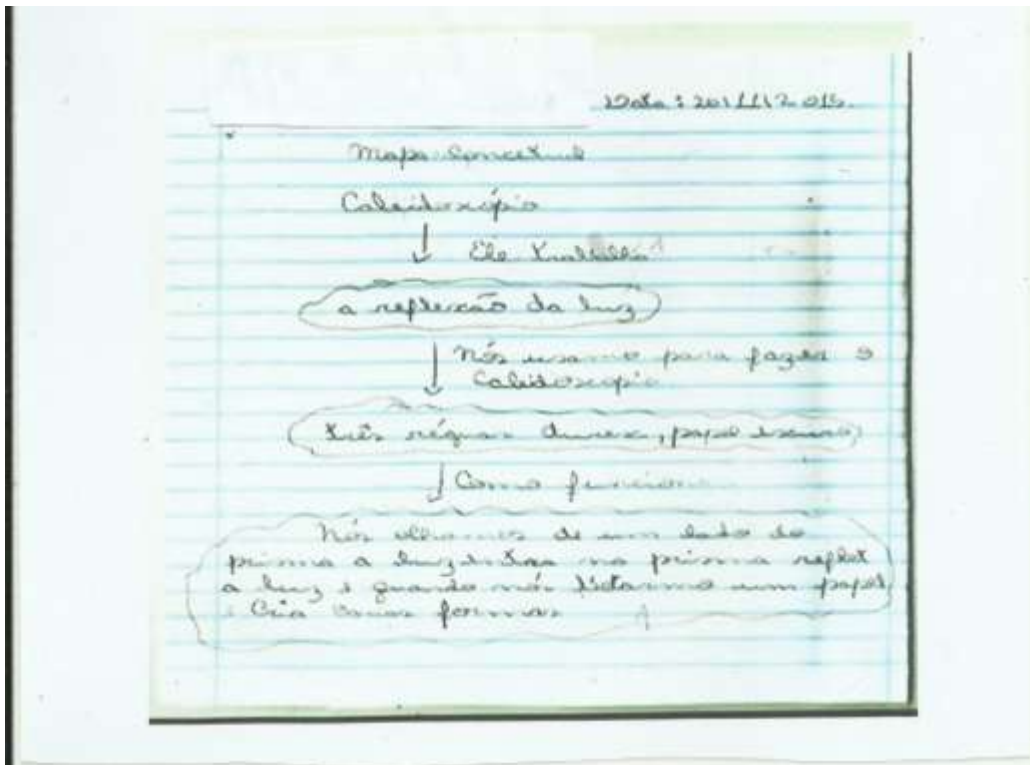 Data: 20/11/2015.
Mapa Concetual
Caleidoscópio
Ele trabalha
a reflexão da luz
Nós usamo para fazer o
Caleidoscopio
três réguas durex, papel escuro
Como funciona
Nós olhamos de um lado do
prisma a luz entra no prisma reflet
a luz e quando nós um papel
Cria formas